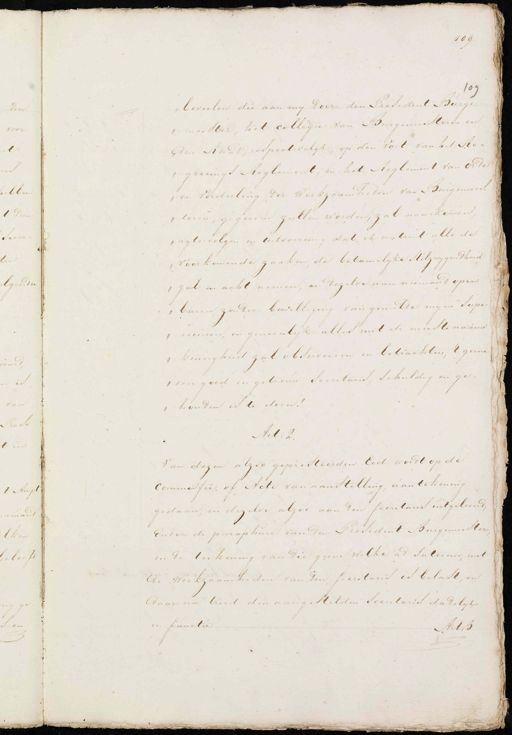 109
109
bevelen die aan my door den President Burge-
meester, het collegie van Burgemeesteren en
den Raad, respectivelyk, op den voet van het Re-
geerings Reglement, en het Reglement van orde
en verdeeling der Werkzaamheden van Burgemees-
teren, gegeven zullen worden, zal nakomen,
agtervolgen en uitvoeren, dat ik omtrent alle de
voorkomende zaaken de betamelyke stilzwygendheid
zal in acht nemen, en dezelve aan niemand open-
baren zonder bewilliging van gemelde myne Supe-
rieuren, en generalyk alles met de meeste nauw-
keurigheid zal observeeren en betrachten, 't geene
een goed en getrouw Secretaris, schuldig en ge-
houden is te doen.
Art. 2.
Van dezen alzoo gepresteerden Eed wordt op de
Commissie, of Acte van aanstelling aantekening
gedaan, en dezelve alzoo aan den Secretaris uitgereikt,
onder de paraphure van den President Burgemeester,
en de tekening van die geene welke ad Interim met
de Werkzaamheden van den Secretaris is belast, en
daar na treed den aangestelden Secretaris dadelyk
in functie
Art. 3